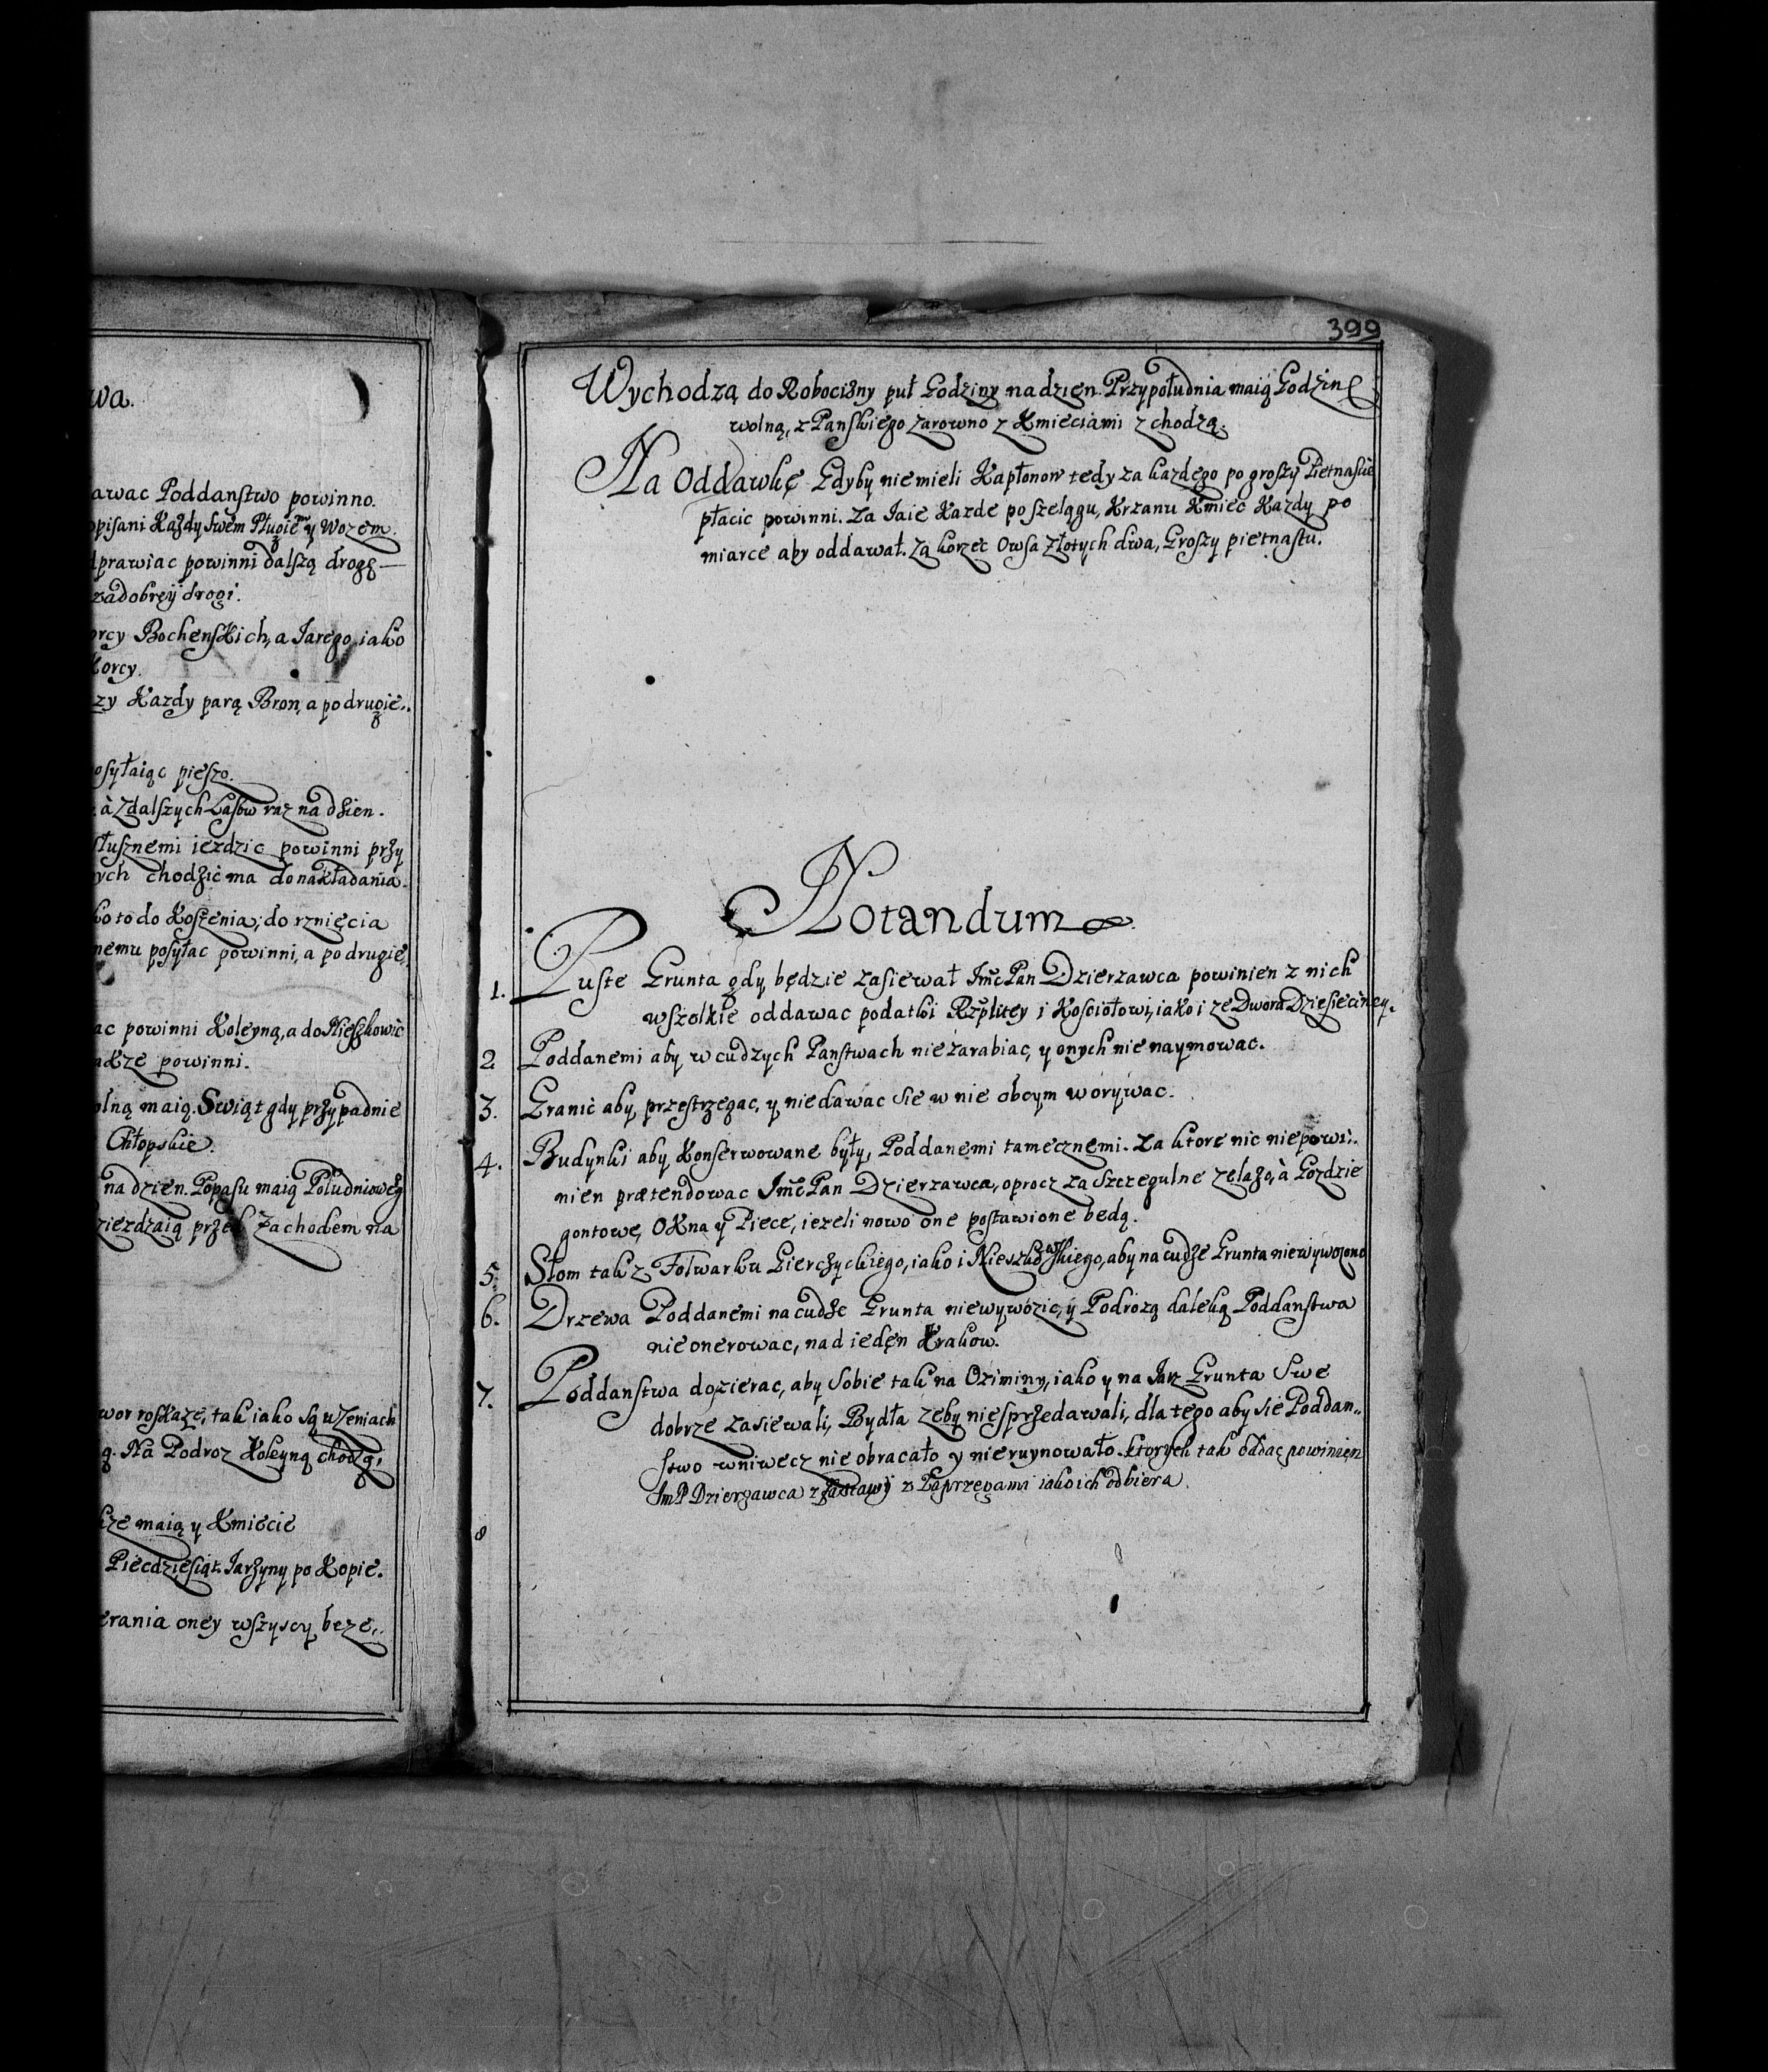 wa.
awac Poddanstwo powinno.
opisani Kazdy swem Pługiem y Wozem.
dprawiac powinni dalszą drogę
zadobrey drogi.
orcy Bochenskich, a Iarego iako
Korcy.
zy Kazdy parą Bron, a po drugie..
osyłaiąc pieszo.
à Zdalszych Lasow raz na dzien.
słusznemi iezdzic powinni przy
ych chodzić ma do nakładania.
ko to do Koszenia, do rznięcia
nemu posyłac powinni, a po drugie,
ac powinni Koleyną, a do Nieszkowic
adze powinni.
olną maią. Swiąt gdy przypadnie
Chłopskie.
na dzien. Popasu maią Południoweg
zieżdzaią przed Zachodem na
wor roskaze, tak iako są u Zeniach
ą. Na Podroz Koleyną chodzą,
kze maią y Kmiecie
Piecdziesiąt. Iarzyny po Kopie.
erania oney wszyscy beze,.
399
Wychodzą do Robocizny puł Godziny na dzien. Przypołudnia maią Godzinę
wolną, z Panskiego zarowno z Kmieciami zchodzą.
Na Oddawkę Gdyby niemieli Kapłonow tedy za kazdego po groszy Pietnascie
płacic powinni. Za Iaie Kazde po szelągu, Krzanu Kmiec Kazdy po
miarce aby oddawał. Za korzec Owsa Złotych dwa, Groszy pietnastu.
Notandum
1. Puste Grunta gdy będzie zasiewał Imc Pan Dzierzawca powinien z nich
wszolkie oddawac podatki Rzplitey i Kosciołowi, iako i ze Dwora Dziesieciney.
2 Poddanemi aby w cudzych Panstwach nie zarabiac, y onych nie naymowac.
3. Granic aby, przestrzegac, y niedawac sie w nie obcym woryẃac.
4. Budynki aby Konserwowane były, Poddanemi tamecznemi. Za ktore nic niepowi:.
nien prætendowac Imc Pan Dzierzawca, oprocz za Szczegulne zelazo, à Gozdzie
gontowe, Okna y Piece, iezeli nowo one postawione bedą.
5. Słom tak z Folwarku Gierczyckiego, iako i Nieszkowskiego, aby na cudze Grunta niewywozono
6. Drzewa Poddanemi na cudze Grunta niewywozic, y Podrozą daleką Poddanstwa
nieonerowac, nad ieden Krakow.
7. Poddanstwa dozierac, aby Sobie tak na Oziminy, iako y na Iarz Grunta Swe
dobrze zasiewali, Bydła zeby niesprzedawali, dla tego aby sie Poddan,,
stwo wniwecz nie obracało y nieruynowało. ktorych tak oddac powinien
ImP Dzierzawca z z Zaprzęgami iako ich odbiera.
8